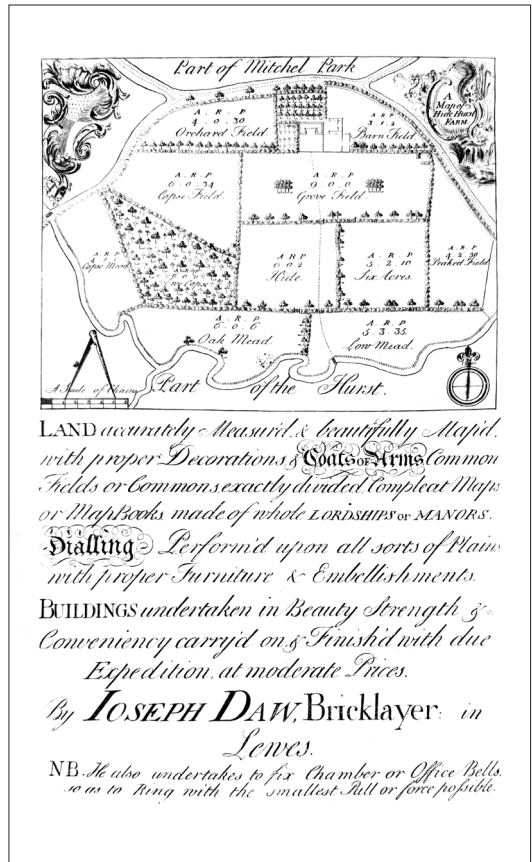 Part of Mitchel Park
A Map of
Hide Hurst
FARM
A . R . P
4 . 0 . 30
Orchard Field.
A . R . P
Barn Field
A . R . P
6 . 0 . 34
Copse Field.
A . R . P
9 . 0 . 0
Grove Field.
A R P
Copse
A R P
6 0 2
Hide.
A . R . P
5 . 2 . 10
Six Acres.
A R P
Peaked Field
A . R . P
6 . 0 . 6
Oak Mead.
A . R . P
5 . 3 . 35.
Low Mead.
A Scale of Chains
Part of the Hurst.
LAND accurately Measur'd, & beautifully Map'd,
with proper Decorations & Coats of Arms Common
Fields or Commons, exactly divided, Compleat Maps
or Map Books made of whole LORDSHIPS or MANORS.
Dialling Perform'd upon all sorts of Plains
with proper Furniture & Embellishments.
BUILDINGS undertaken in Beauty Strength &
Conveniency carry'd on, & Finish'd with due
Expedition, at moderate Prices.
By IOSEPH DAW, Bricklayer: in
Lewes.
NB. He also undertakes to fix Chamber or Office Bells,
so as to Ring with the smallest Pull or force possible.